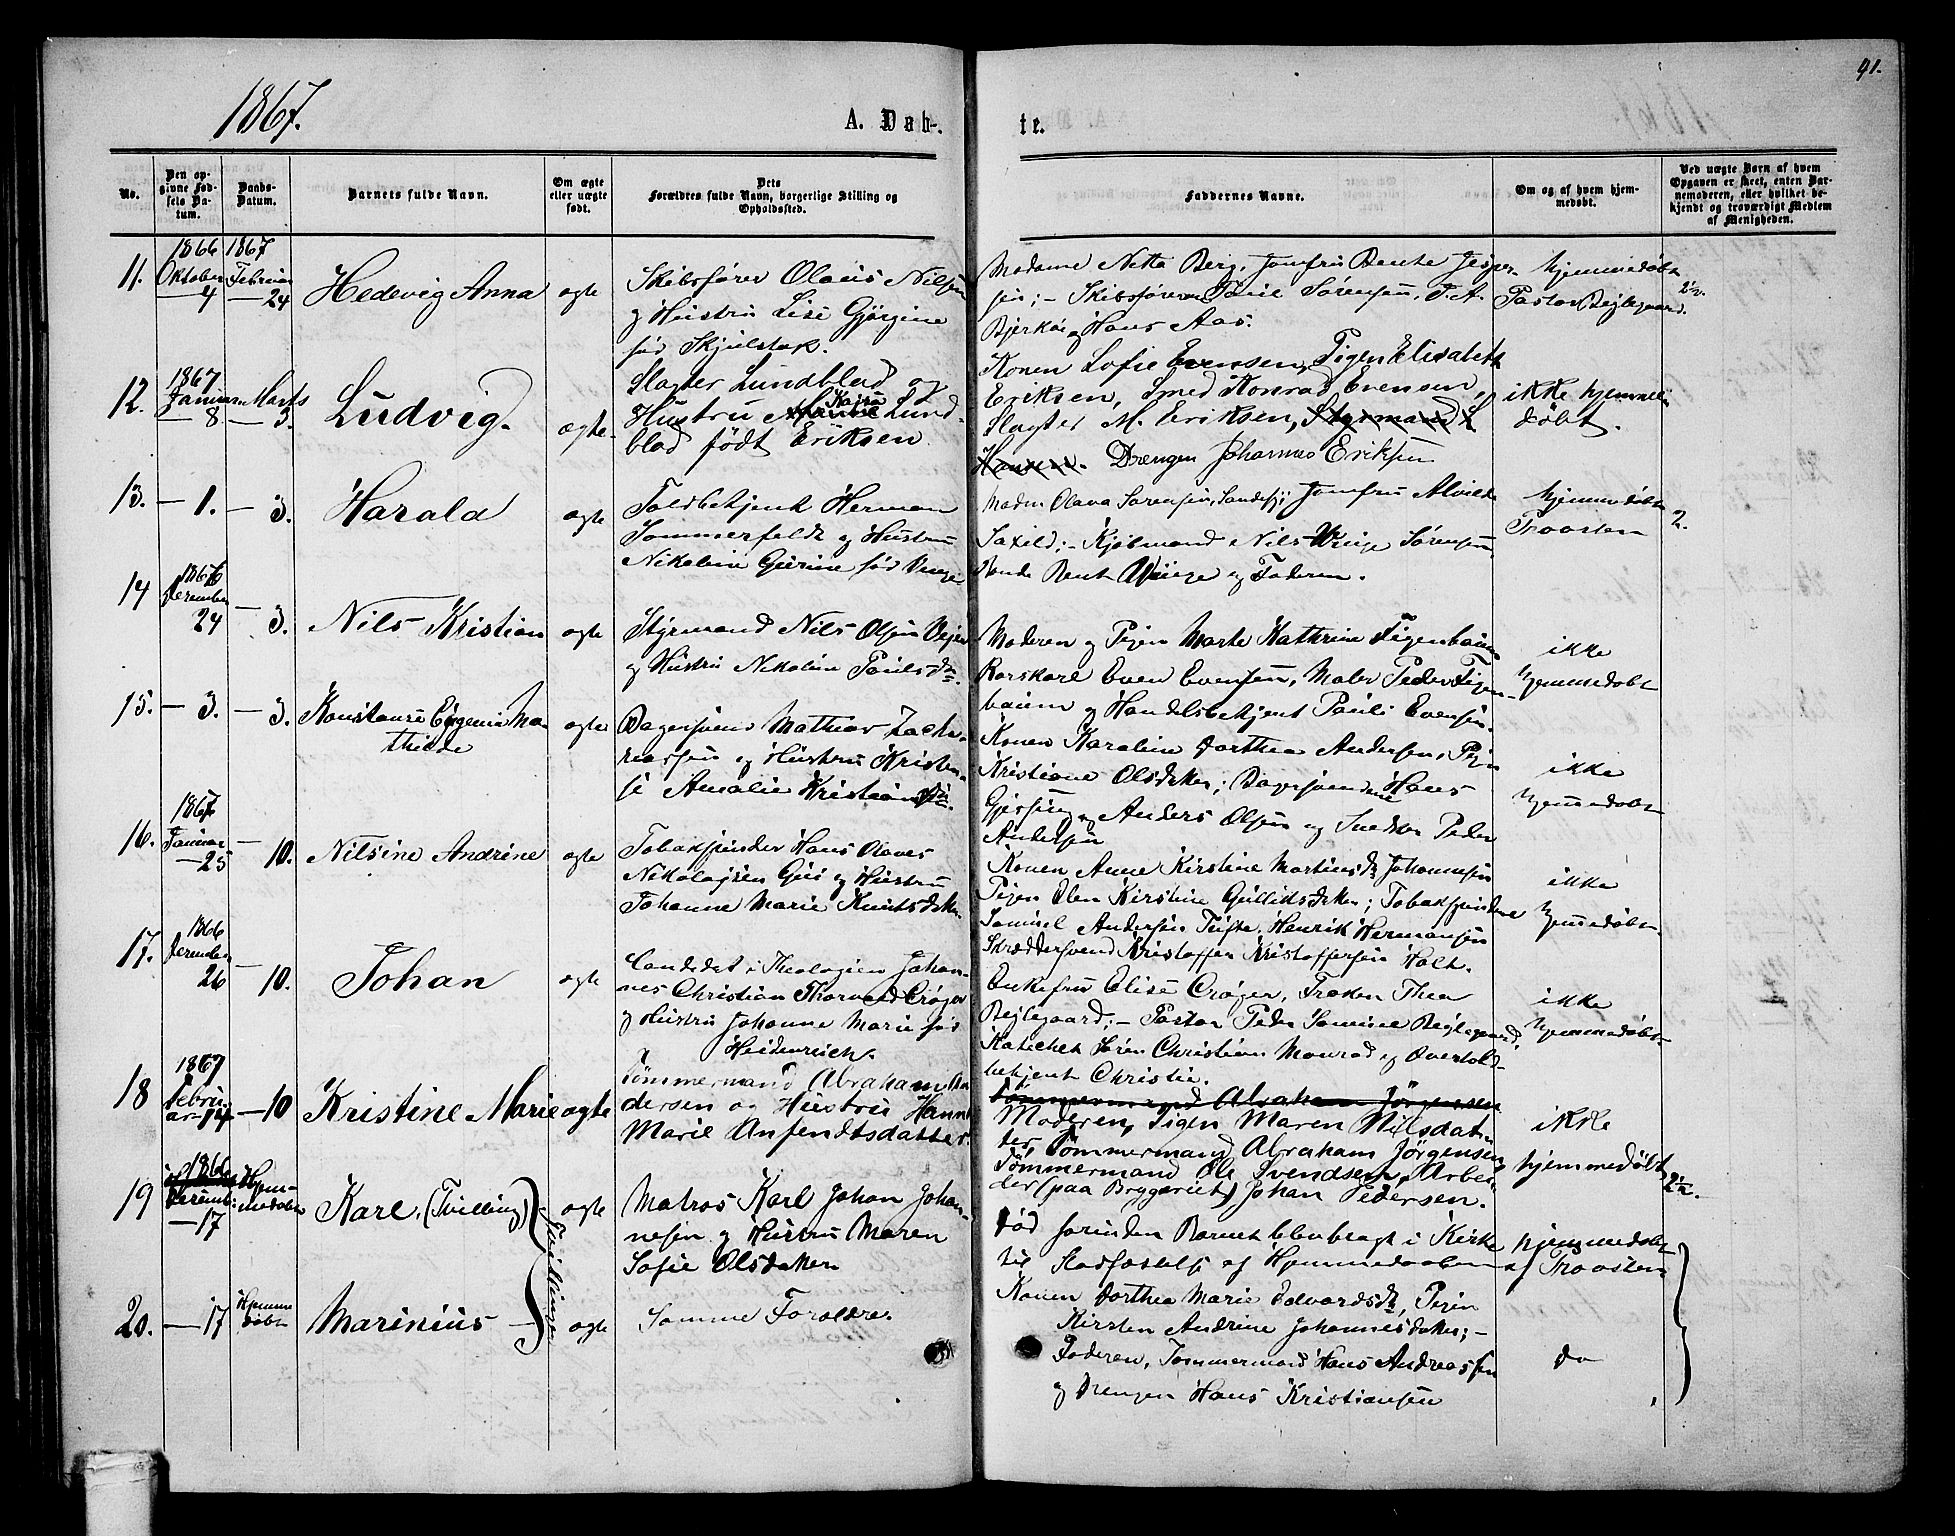 1867.
A. Døb-
te.
41.
No.
Den op-
givne Fød-
sels Da-
tum.
Daabs-
Datum.
Barnets fulde Navn.
Om ægte
eller uægte
født.
Dets
Forældres fulde Navn, borgerlige Stilling og
Opholdssted.
Faddernes Navne.
Om og af hvem hjem-
medøbt.
Ved uægte Børn af hvem
Opgaven er skeet, enten Bar-
nemoderen, eller hvilket be-
kjendt og troværdigt Medlem
af Menigheden.
11.
1866
Oktober
4
1867
Februar
24
Hedevig Anna
ægte
Skibsfører Olaus Nilsen
og Hustru Lise Gjørgine
fød Skjelstak.
Madame Netta Berg, Jomfru Bente Jesper-
sen; – Skibsførerne Paul Sørensen, J. A.
Bjerkøe og Hans Aas.
hjemmedøbt
Pastor Bejlegaard.
2½.
12.
1867
Januar
8
Marts
3.
Ludvig.
ægte
Slagter Lundblad og
Hustru Kaja Lund-
blad født Eriksen.
Konen Sofie Evensen, Pigen Elisabeth
Eriksen, Smed Konrad Evensen,
Slagter M. Eriksen, Styrmand S
Hansen. Drengen Johannes Eriksen
ikke hjemme-
døbt.
13.
— 1.
— 3.
Harald
ægte
Toldbetjent Herman
Sommerfeldt og Hustru
Nikoline Gurine fød Unge
Madm Olava Sørensen, Sandefj; Jomfru Alvilde
Saxild; – Kjøbmand Nils Unge Sørensen
Bent Unge og Faderen.
hjemmedøbt
Troosten
2.
14
1866
December
24
— 3.
Nils Kristian
ægte
Styrmand Nils Olsen Vejer
og Hustru Nikoline Paulsdr.
Moderen og Pigen Marte Kathrine Figenbaum
Karskarl Even Evensen, Maler Peder Figen-
baum og Handelsbetjent Pauli Evensen.
ikke
hjemmedøbt
15.
— 3.
— 3.
Konstanse Eugenia Ma-
thilde
ægte
Bagersvend Mathias Zacha-
riassen og Hustru Kristen-
se Amalie Kristiansdr.
Konen Karoline Dorthea Andersen, Pigen
Kristiane Olsdatter; Bagersvendene Hans
Gjessing og Anders Olsen og Snedker Peder
Andersen
ikke
hjemmedøbt
16.
1867
Januar
25
— 10.
Nilsine Andrine
ægte
Tobakspinder Hans Olaves
Nikolajsen Gui og Hustru
Johanne Marie Knutsdatter
Konen Anne Kirstine Martinsdr Johannesen
Pigen Elen Kirstine Gullidsdatter; Tobakspinderne
Samuel Andersen Tufte, Henrik Hermansen
Skræddersvend Kristoffer Kristoffersen Holt.
ikke
hjemmedøbt.
17.
1866
December
26
— 10.
Johan
ægte
Candidat i Theologien Johan-
nes Christian Thorvald Crøger
og Hustru Johanne Marie fød
Heidenreich.
Enkefru Elise Crøger, Frøken Thea
Bejlegaard; – Pastor Peder Samuel Bejlegaard,
Katechet Søren Christian Monrad og Overtold-
betjent Christie.
ikke
hjemmedøbt
18
1867
Febru-
ar 14
— 10
Kristine Marie
ægte
Tømmermand Abraham An-
dersen og Hustru Hanna
Marie Anfendtsdatter
Tømmermand Abraham Jörgensen
Moderen, Pigen Maren Nilsdat-
ter, Tømmermand Abraham Jörgensen,
Tömmermand Ole Svendsen, Arbei-
der (paa Bryggeriet) Johan Pedersen.
ikke
hjemmedøbt
19
1866
Decemb:
17
Hjem-
medøbt
Karl, (Tvilling)
ægte
Matros Karl Johan Johan-
nesen og Hustru Maren
Sofie Olsdatter
Død forinden Barnet blev bragt i Kirke
til Stadfæstelse af Hjemmedaaben
hjemmedøbt
af Troosten
2½.
20.
— 17
Hjemme
døbt
Marinius
Tvillinger
ægte
Samme Forældre.
Konen Dorthea Marie Edvardsdr, Pigen
Kirsten Andrine Johannesdatter; –
Faderen, Tømmermand Hans Andreassen
og Drengen Hans Kristiansen
do